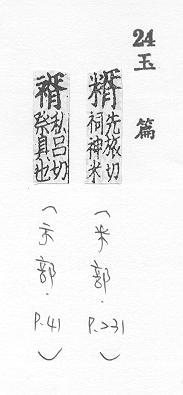 24
玉篇
糈 先旅切祠神米 （米部．P.231）
䄖 私呂切祭具也 （示部．P.41）